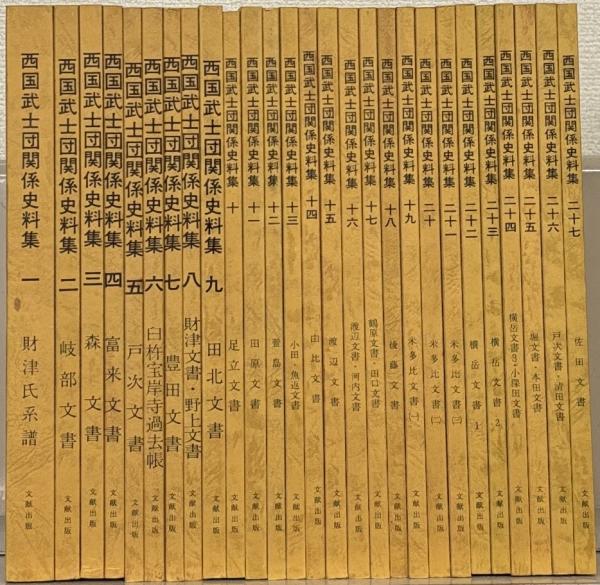 西国武士団関係史料集 一 財津氏系譜 文献出版
西国武士団関係史料集 二 岐部文書 文献出版
西国武士団関係史料集 三 森文書 文献出版
西国武士団関係史料集 四 富来文書 文献出版
西国武士団関係史料集 五 戸次文書 文献出版
西国武士団関係史料集 六 臼杵宝岸寺過去帳 文献出版
西国武士団関係史料集 七 豊田文書 文献出版
西国武士団関係史料集 八 財津文書・野上文書 文献出版
西国武士団関係史料集 九 田北文書 文献出版
西国武士団関係史料集 十 足立文書 文献出版
西国武士団関係史料集 十一 田原文書 文献出版
西国武士団関係史料集 十二 萱島文書 文献出版
西国武士団関係史料集 十三 小田・魚返文書 文献出版
西国武士団関係史料集 十四 由比文書 文献出版
西国武士団関係史料集 十五 渡辺文書 文献出版
西国武士団関係史料集 十六 渡辺文書・河内文書 文献出版
西国武士団関係史料集 十七 鶴原文書・田口文書 文献出版
西国武士団関係史料集 十八 後藤文書 文献出版
西国武士団関係史料集 十九 米多比文書(一) 文献出版
西国武士団関係史料集 二十 米多比文書(二) 文献出版
西国武士団関係史料集 二十一 米多比文書(三) 文献出版
西国武士団関係史料集 二十二 横岳文書1 文献出版
西国武士団関係史料集 二十三 横岳文書2 文献出版
西国武士団関係史料集 二十四 横岳文書3・小深田文書 文献出版
西国武士団関係史料集 二十五 堀文書・本田文書 文献出版
西国武士団関係史料集 二十六 戸次文書・清田文書 文献出版
西国武士団関係史料集 二十七 佐田文書 文献出版